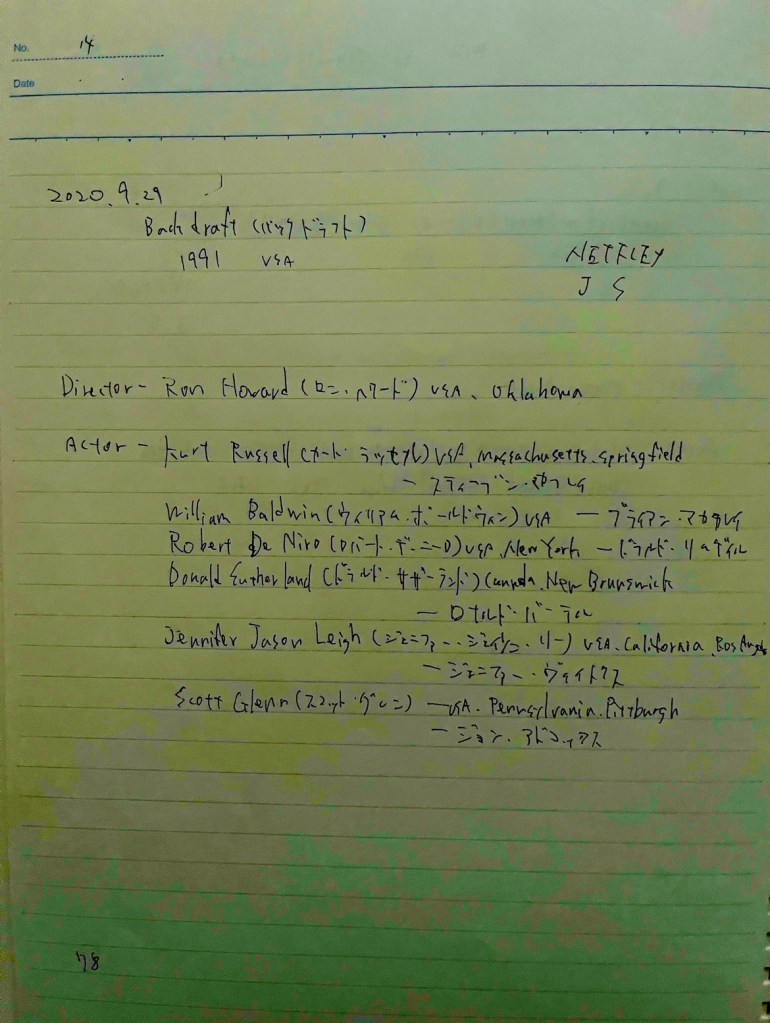 No. 14
Date . .
2020.9.29
Backdraft (バックドラフト)
1991 USA
NETFLEX
J S
Director - Ron Howard (ロン・ハワード) USA、Oklahoma
Actor - Kurt Russell (カート・ラッセル) USA, Massachusetts.Springfield
- スティーブン・
William Baldwin (ウィリアム・ボールドウィン) USA - ブライアン・マカフレイ
Robert De Niro (ロバート・デ・ニーロ) USA.New York - ドナルド・リムゲイル
Donald Sutherland (ドナルド・サザーランド) Canada.New Brunswick
- ロナルド・バーテル
Jennifer Jason Leigh (ジェニファー・ジェイソン・リー) USA.California.Ros Angels
- ジェニファー・ヴァイトクス
Scott Glenn (スコット・グレン) - USA.Pennsylvania.Pittsburgh
- ジョン・アドコックス
78